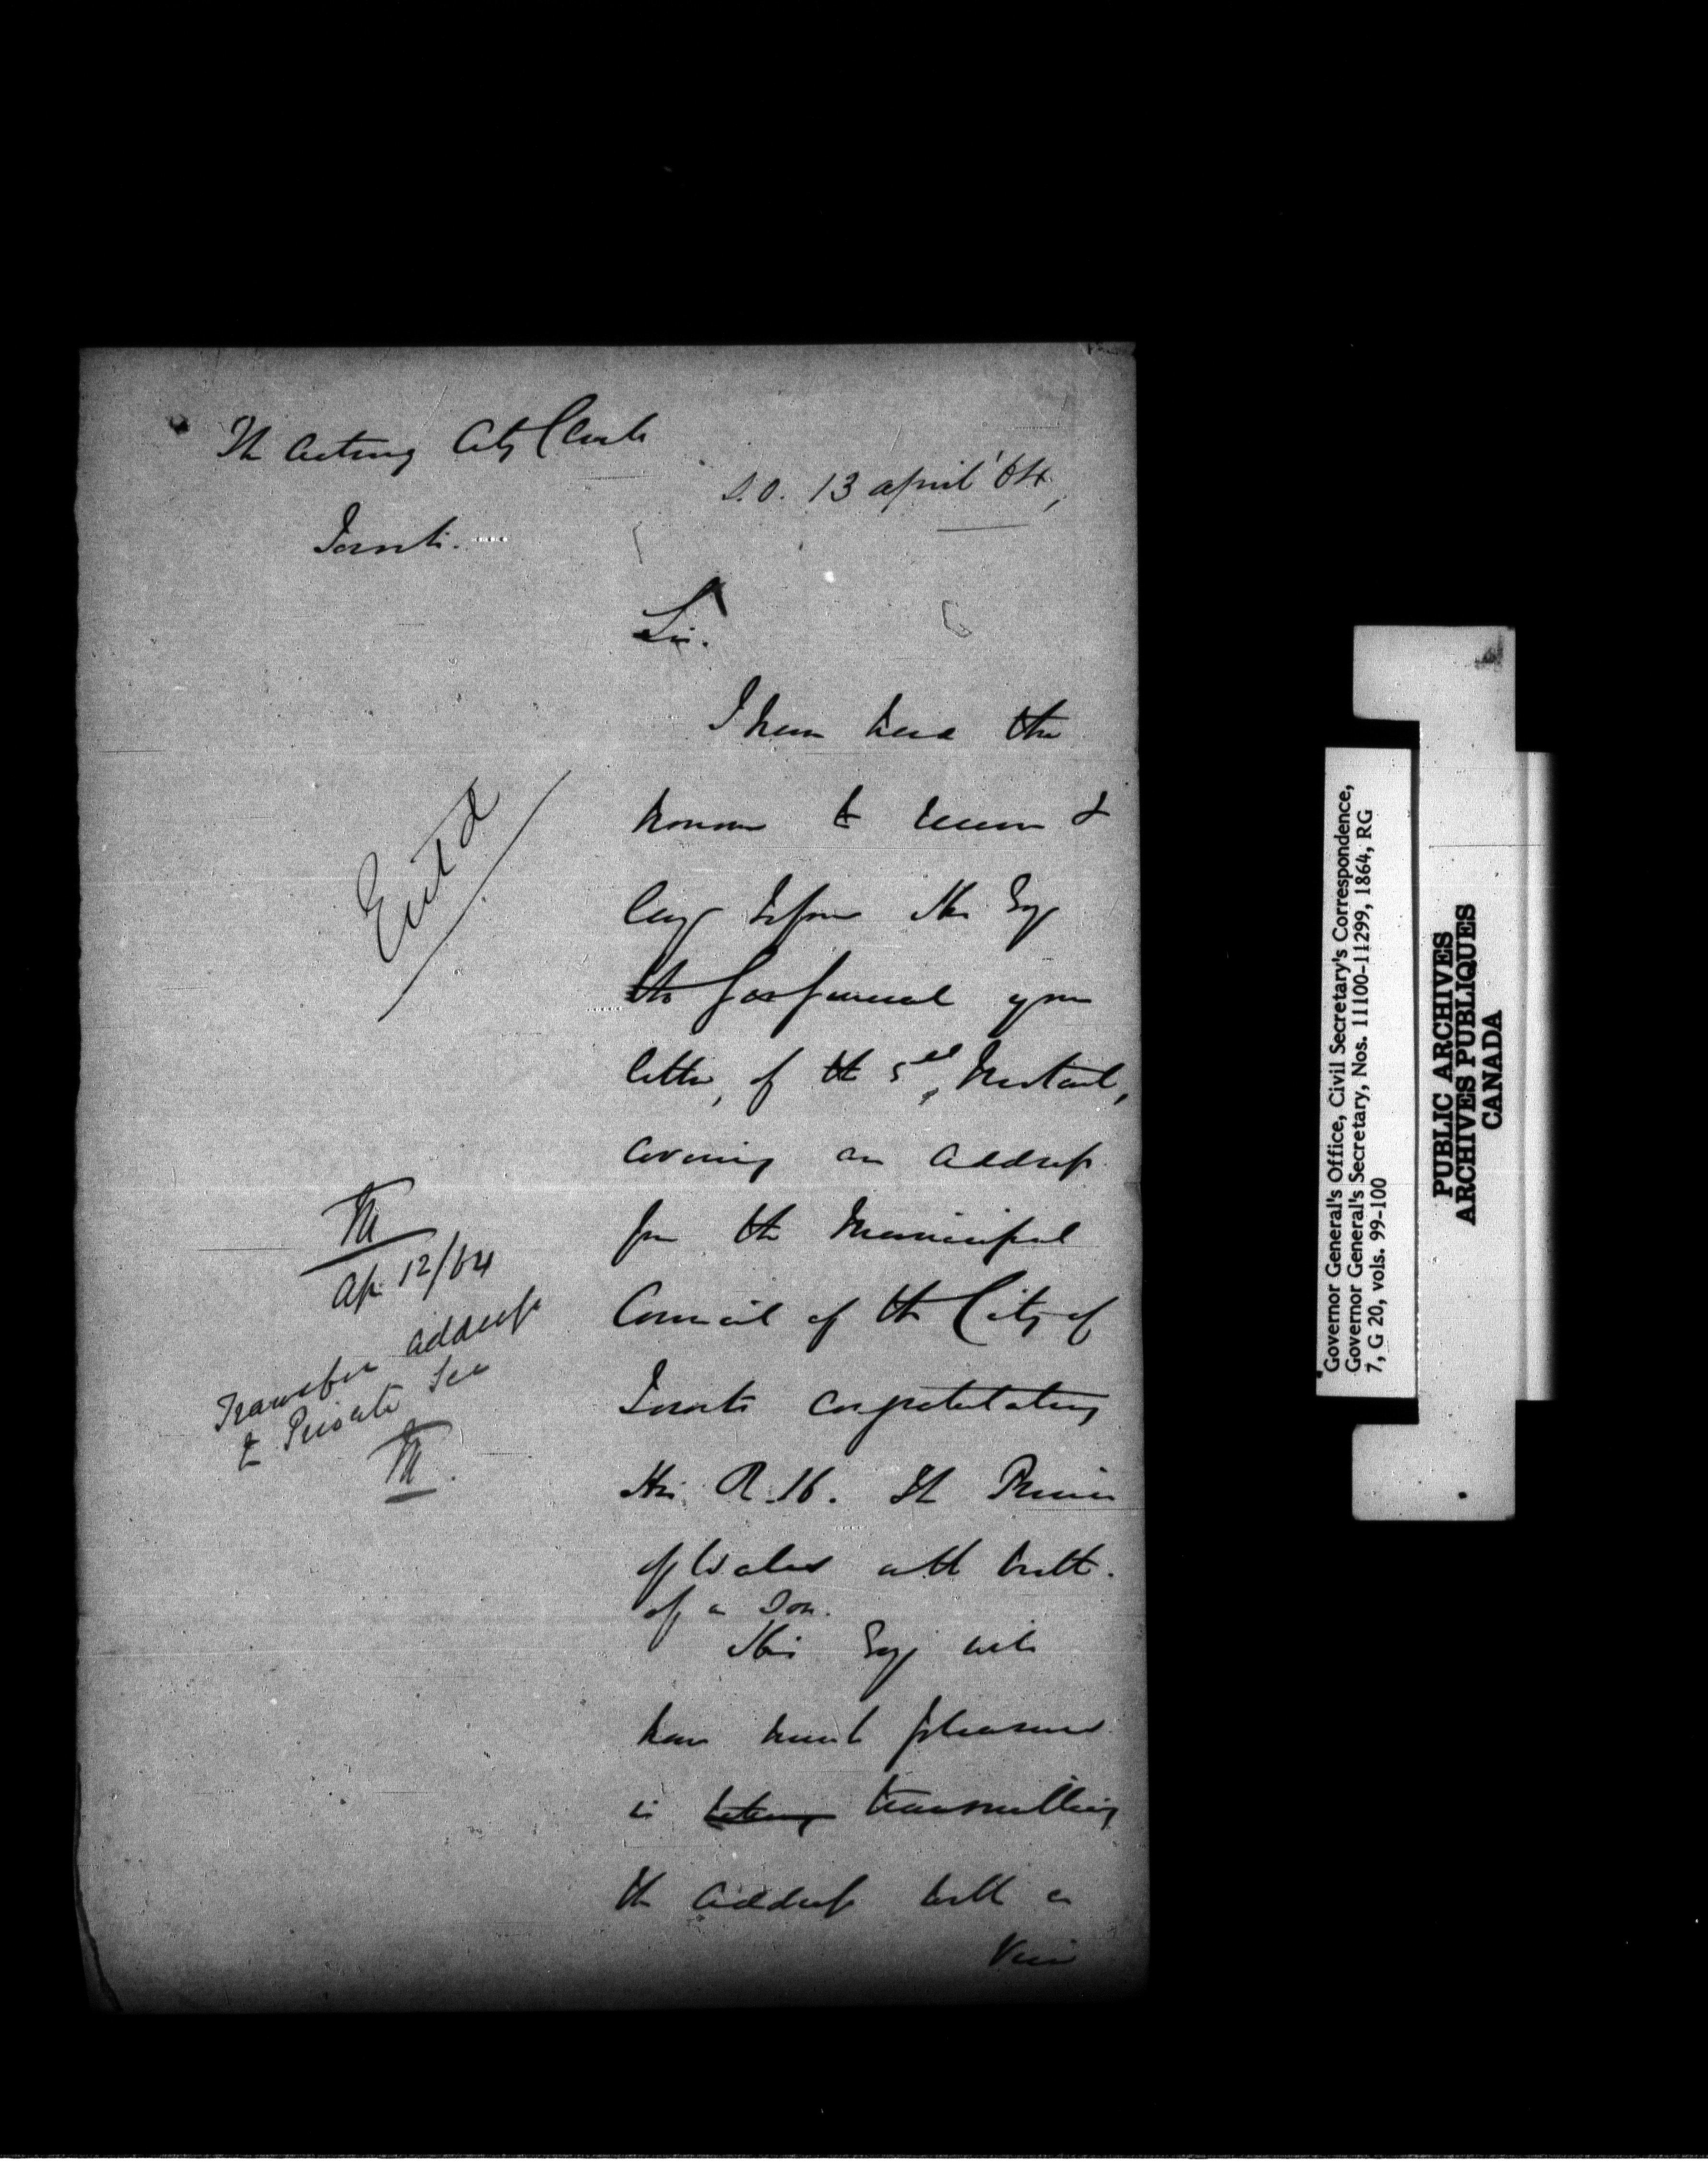 The Acting City Clerk
S.O. 13 April '64,
Toronto.
Sir.
I have had the
honour to receive &
lay before His Exy
the Gov General your
letter, of the 5th Instant,
covering an Address
from the Municipal
Council of the City of
Toronto congratulating
His R.H. The Prince
of Wales on the birth
of a Son.
His Exy will
have much pleasure
in taking transmitting
the Address with a
View
Ent'd
Ap 12/64
Transfer address
to Private Sec
Governor General's Office, Civil Secretary's Correspondence,
Governor General's Secretary, Nos. 11100-11299, 1864, RG
7, G 20, vols. 99-100
PUBLIC ARCHIVES
ARCHIVES PUBLIQUES
CANADA